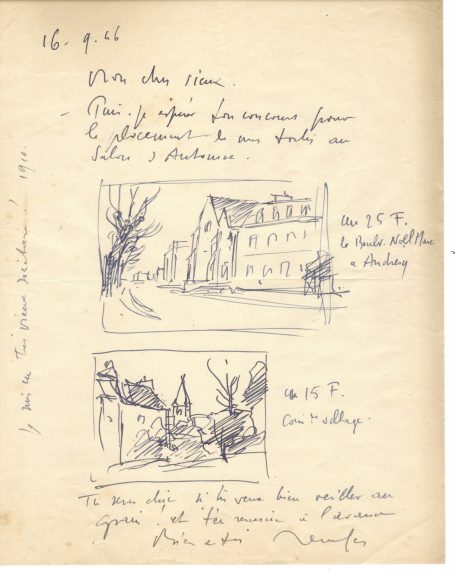 16.9.46
Mon cher vieux.
Puis-je espérer ton concours pour
le placement de mes toiles au
Salon d'Automne.
un 25 F.
le Boulv. Noël Marc
a Andrésy
un 15 F.
Coin de village.
Tu seras chic si tu veux bien veiller au
grain! et t'en remercie à l'avance
Bien a toi
je suis un très vieux sociétaire! 1910.